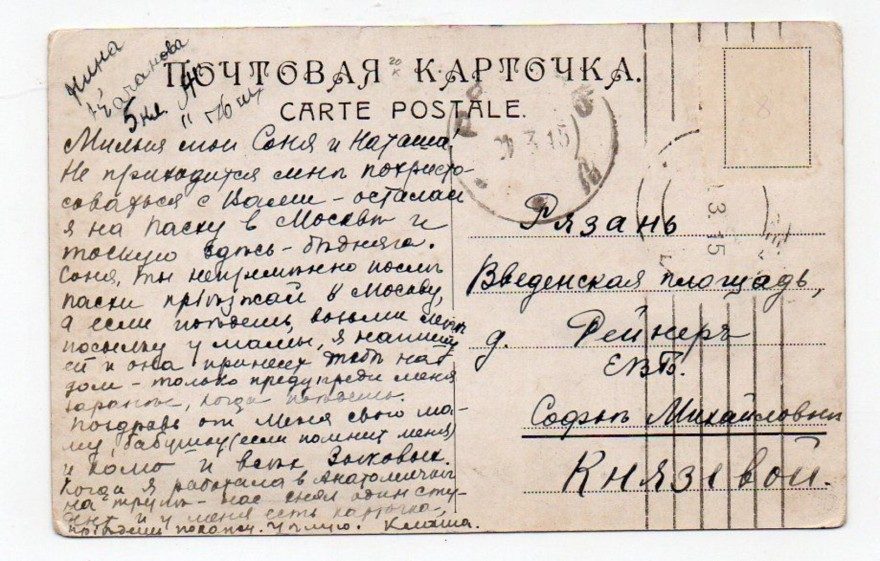 Нина
Качанова
5 кл.
ПОЧТОВАЯ КАРТОЧКА.
CARTE POSTALE.
Милыя мои Соня и Наташа!
Не приходится мнѣ похристо-
соваться с Вами - осталась
я на Пасху в Москвѣ и
тоскую здѣсь - бѣдняга.
Соня, ты непремѣнно послѣ
пасхи пріѣзжай в Москву,
а если поѣдешь, возьми мнѣ
посылку у мамы, я напишу
ей и она принесет тебѣ на
дом - только предупреди меня
заранѣе, когда поѣдешь.
Поздравь от меня свою ма-
му, бабушку (если помнит меня)
и и всѣх Зыковых.
Когда я работала в Анатомичке
на трупѣ - нас снял один сту-
дент и у меня есть карточка,
пріѣдешь покажу. Цѣлую. Клаша.
3 15
3.15
Рязань
Введенская площадь,
д. Рейнеръ
Е.В.Б.
Софьѣ Михайловнѣ
Князевой.